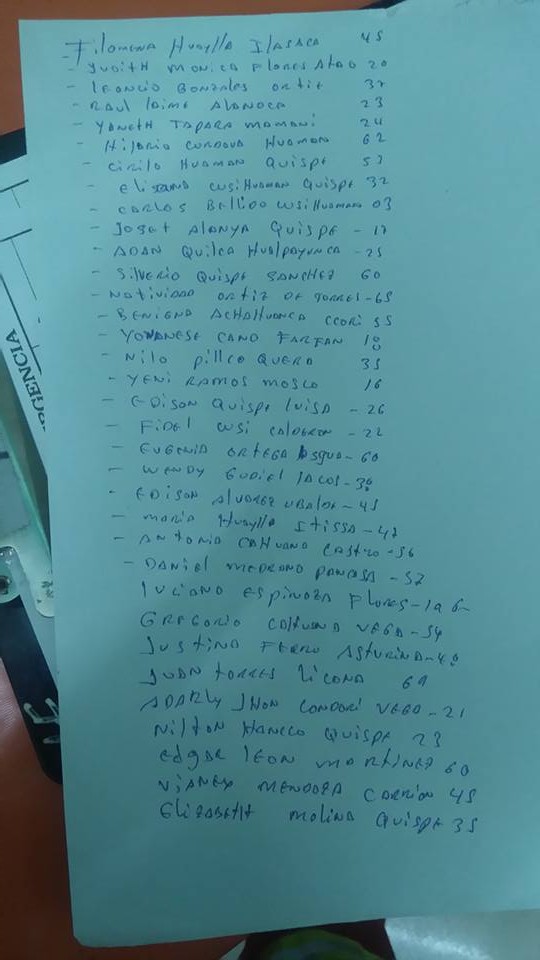 Filomena Huaylla Ilasaca 45
- Yudith Monica Flores Atao 20
- Leoncio Gonzales Ortiz 37
- Raul Jaime Alanoca 23
- Yaneth Tapara Mamani 24
- Hilario Cordova Huaman 62
- Cirilo Huaman Quispe 53
- Cusihuaman Quispe 32
- Carlos Bellido Cusihuaman 03
- Joset Alanya Quispe - 17
- Adan Quilca Huallpayunca - 25
- Silverio Quispe Sanchez 60
- Natividad Ortiz de Torres - 65
- Benigna Achahuanca Ccori 55
- Yovanese Cano Farfan 18
- Nilo Pillco Quera 35
- Yeni Ramos Mosco 16
- Edison Quispe Luisa - 26
- Fidel Cusi Calderon - 22
- Eugenia Ortega - 60
- Wendy Gudiel
- Edison Alvarez Ubalde - 45
- Maria Huaylla Itissa - 47
- Antonia Cahuana Castro - 56
- Daniel Medrano - 52
Luciano Espinoza Flores
Gregorio Cahuana Vega - 54
Justina Ferro Asturina
Juan Torres Licona 69
Adarly Jhon Condori Vega - 21
Nilton Hancco Quispe 23
Edgar Leon Martinez 60
Vianey Mendoza Carrion 45
Elizabeth Molina Quispe 35
RGENCIA